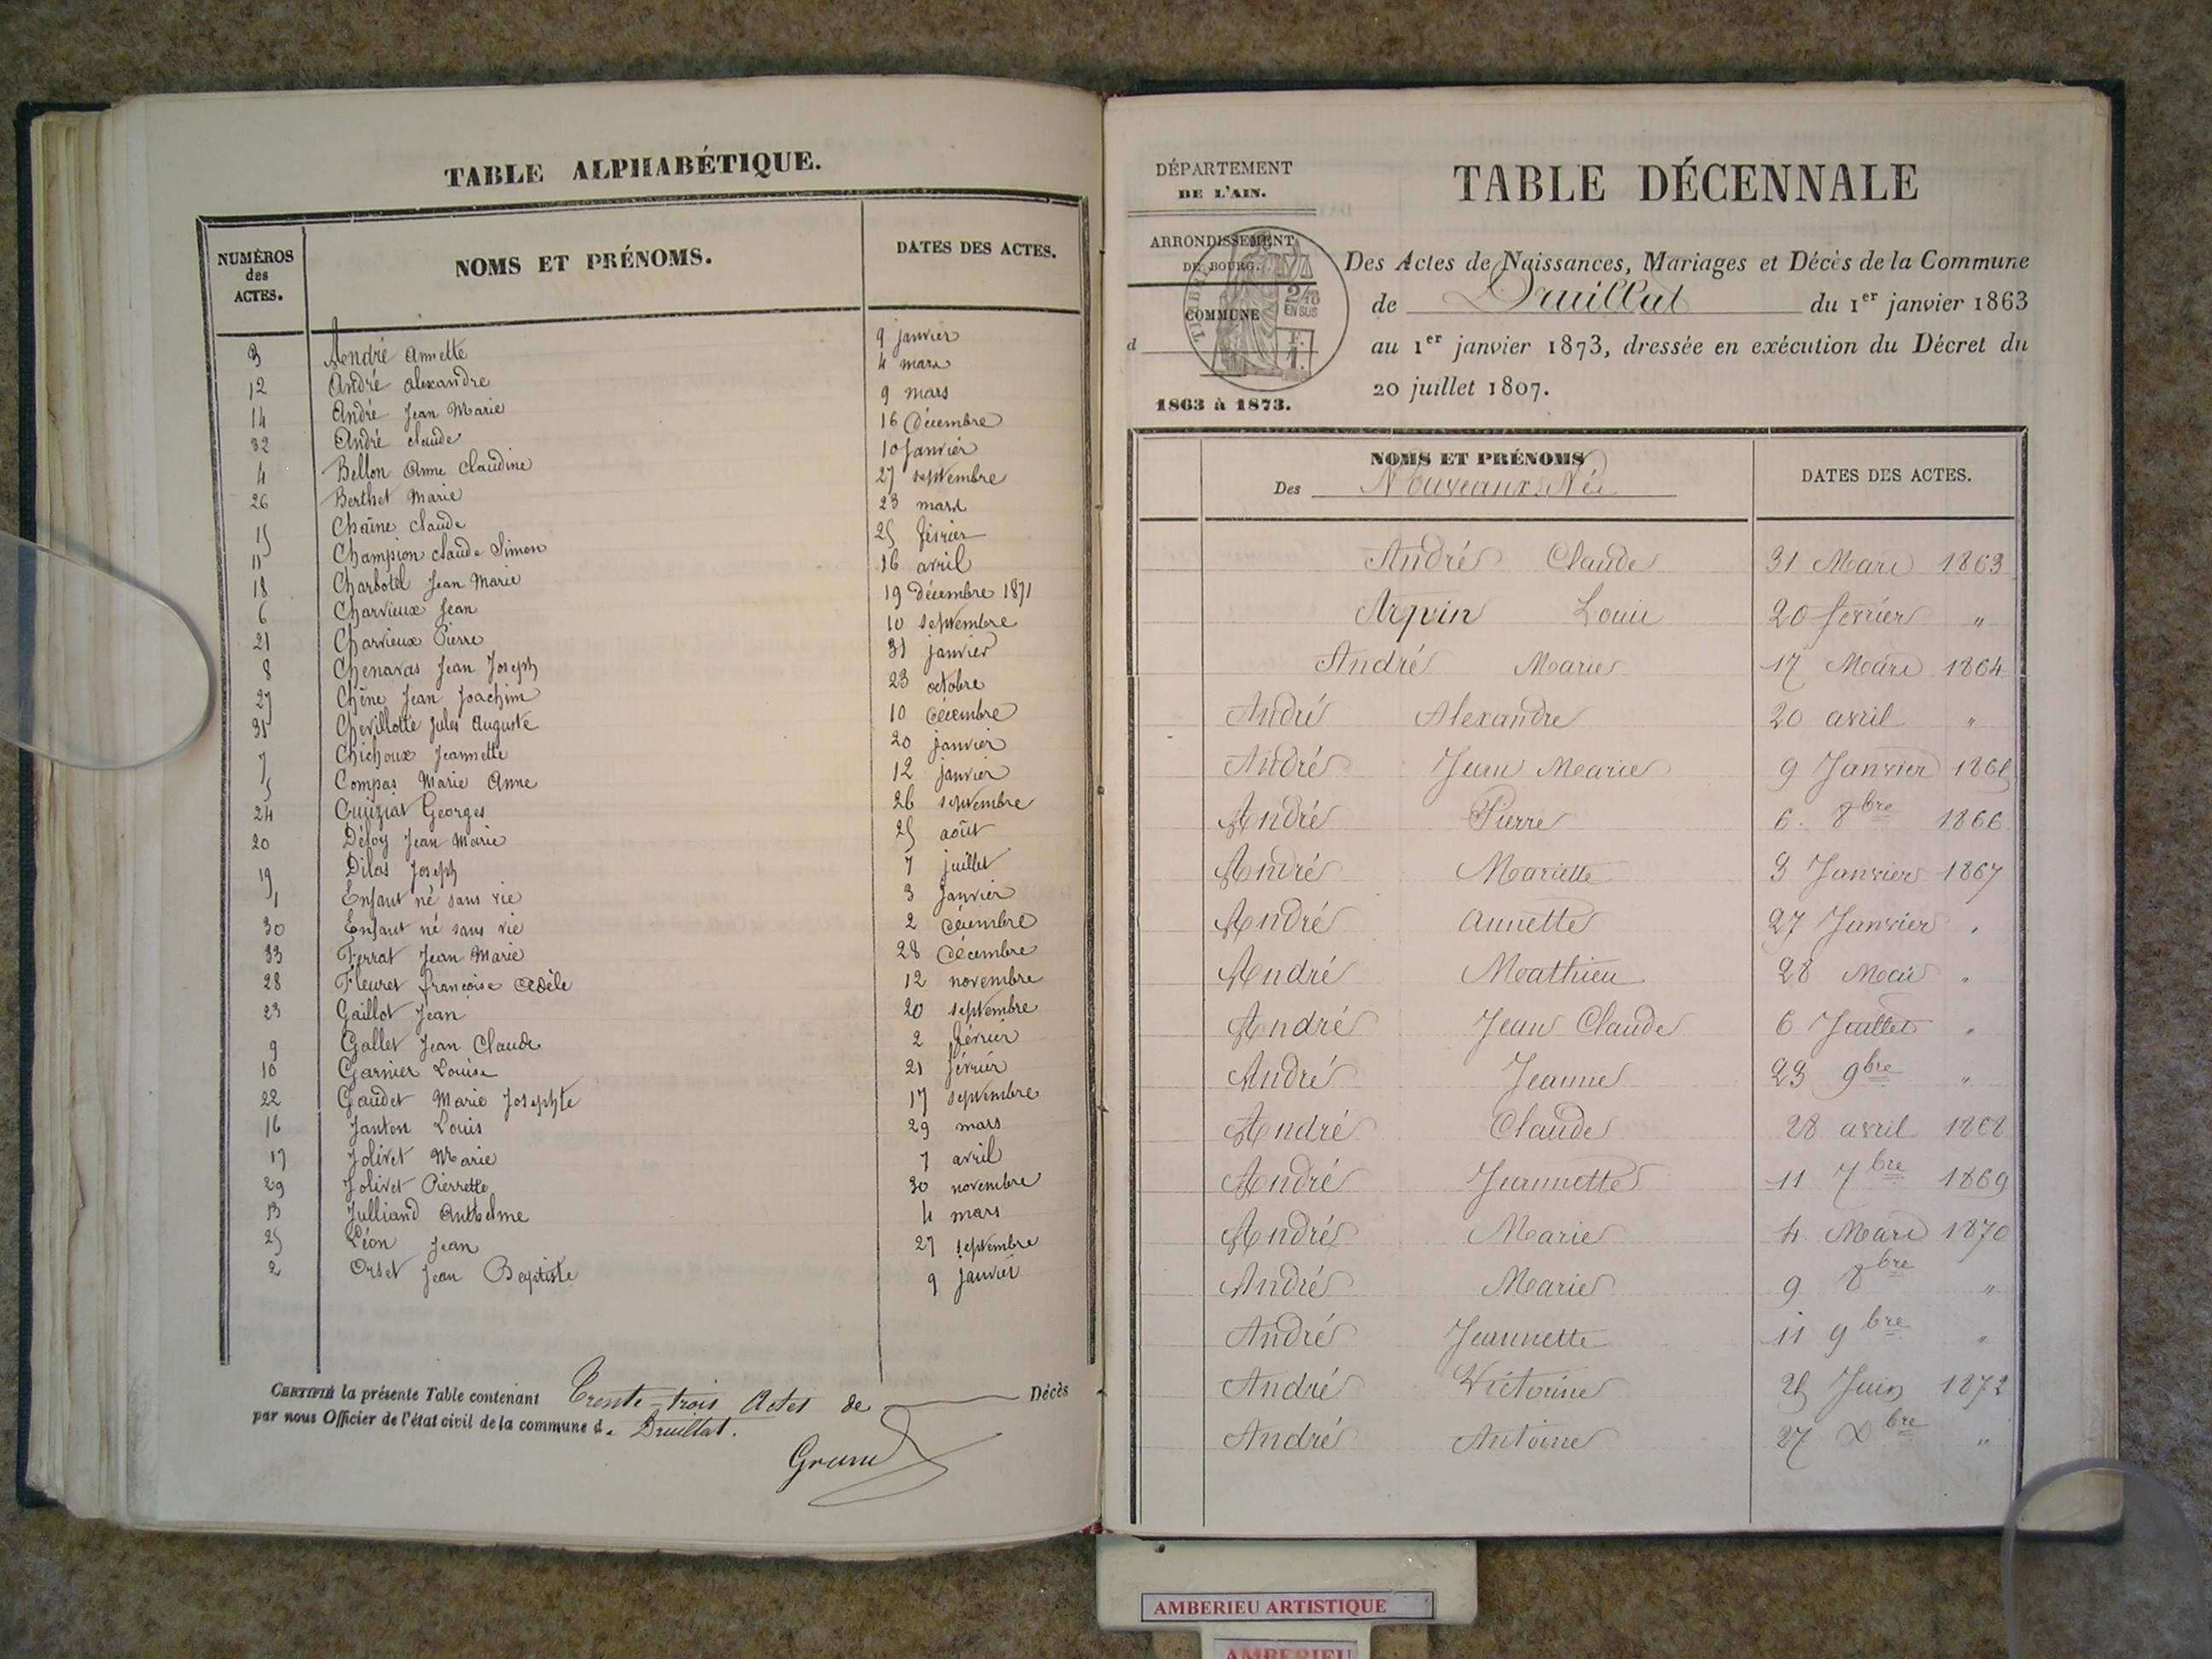 TABLE ALPHABÉTIQUE.
NUMÉROS des ACTES. NOMS ET PRÉNOMS. DATES DES ACTES.
3 André Annette 9 janvier
12 André Alexandre 4 mars
14 André Jean Marie 9 mars
32 André Claude 16 Décembre
4 Bellon Anne Claudine 10 Janvier
26 Berthet Marie 27 septembre
15 Chaîne Claude 23 mars
11 Champion Claude Simon 25 février
18 Charbotel Jean Marie 16 avril
6 Charvieux Jean 19 Décembre 1871
21 Charvieux Pierre 10 septembre
8 Chenavas Jean Joseph 31 janvier
27 Chêne Jean Joachim 23 octobre
31 Chevillotte Jules Auguste 10 Décembre
7 Chichoux Jeannette 20 janvier
5 Compas Marie Anne 12 janvier
24 Cuiziat Georges 26 septembre
20 Défoy Jean Marie 25 août
19 Dilas Joseph 7 juillet
1 Enfant né sans vie 3 Janvier
30 Enfant né sans vie 2 Décembre
33 Ferrat Jean Marie 28 Décembre
28 Fleuret Françoise Adèle 12 novembre
23 Gaillot Jean 20 septembre
9 Gallet Jean Claude 2 février
10 Garnier Louise 21 février
22 Gaudet Marie Josephte 17 septembre
16 Janton Louis 29 mars
17 Jolivet Marie 7 avril
29 Jolivet Pierrette 30 novembre
13 Julliand Anthelme 4 mars
25 Léon Jean 27 septembre
2 Orset Jean Baptiste 9 janvier
CERTIFIÉ la présente Table contenant Trente-trois Actes de Décès
par nous Officier de l'état civil de la commune d. Druillat.
DÉPARTEMENT
DE L'AIN.
ARRONDISSEMENT
DE BOURG.
COMMUNE
d
1863 à 1873.
TIMBRE
2/10
EN SUS
F.
1.
TABLE DÉCENNALE
Des Actes de Naissances, Mariages et Décès de la Commune
de Druillat du 1er janvier 1863
au 1er janvier 1873, dressée en exécution du Décret du
20 juillet 1807.
NOMS ET PRÉNOMS
Des Nouveaux Nés
DATES DES ACTES.
André Claude 31 Mars 1863
Arpin Louis 20 février "
André Marie 17 Mars 1864
André Alexandre 20 avril "
André Jean Marie 9 Janvier
André Pierre 6. 8bre 1866
André Mariette 3 Janvier 1867
André Annette 27 Janvier "
André Mathieu 28 "
André Jean Claude 6 Juillet "
André Jeanne 23 9bre "
André Claude 28 avril 1868
André Jeannette 11 7bre 1869
André Marie 4 Mars 1870
André Marie 9 8bre "
André Jeannette 11 9bre "
André Victorine 25 Juin 1872
André Antoine 27 Xbre "
AMBERIEU ARTISTIQUE
AMBERIEU